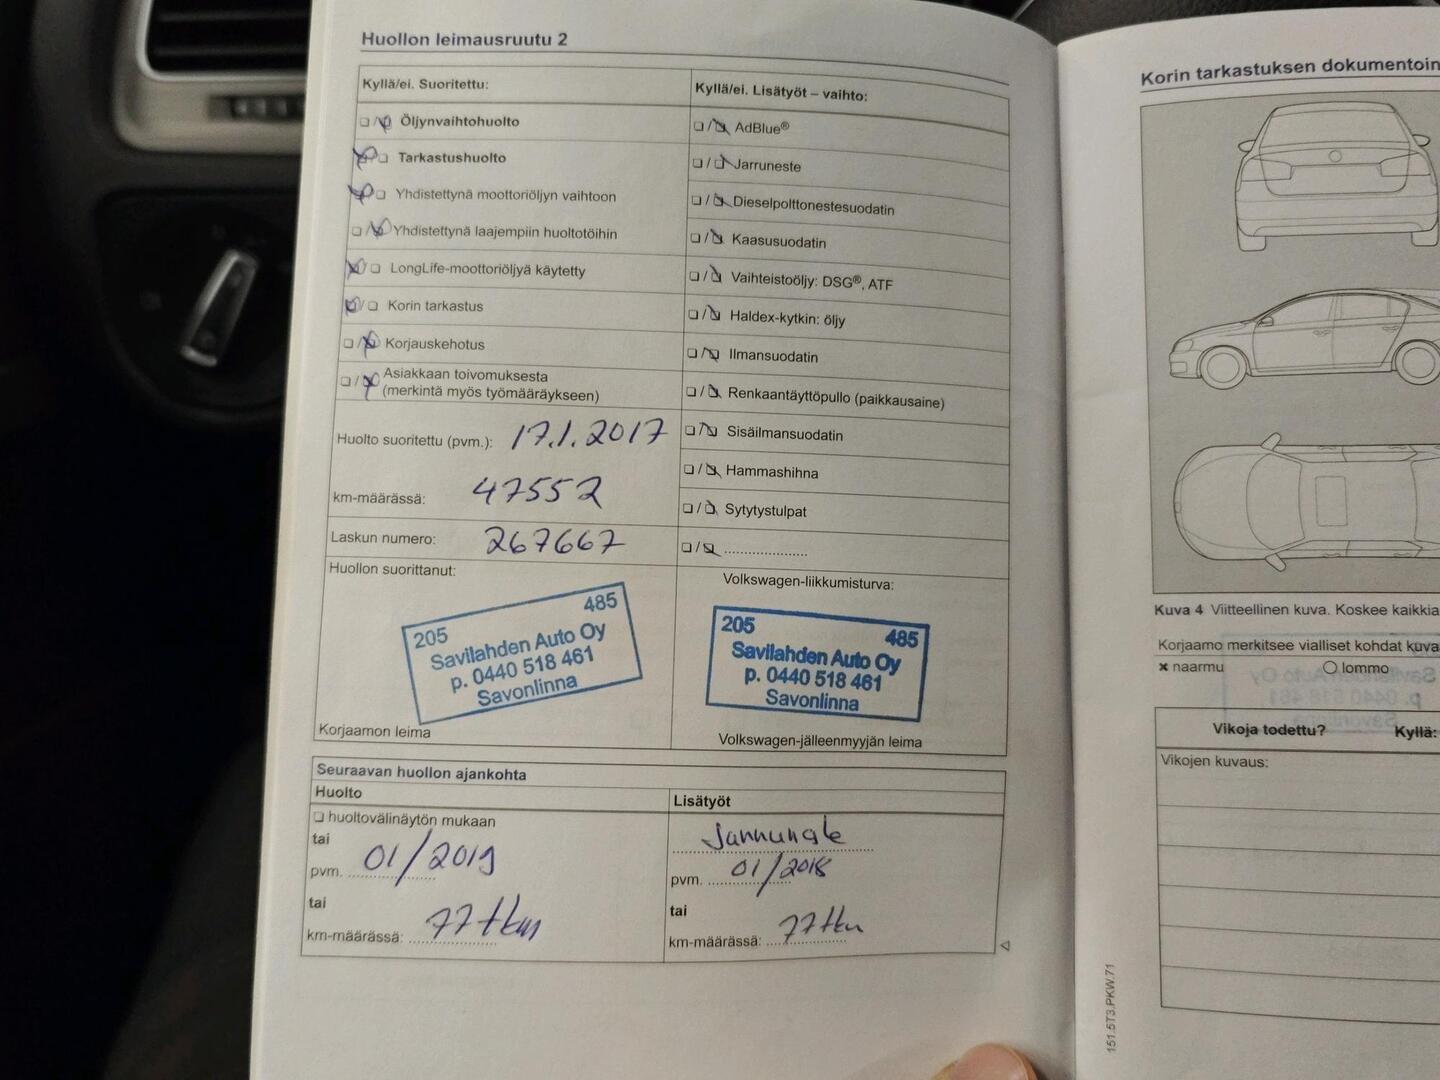 Huollon leimausruutu 2
Kyllä/ei. Suoritettu:
Öljynvaihtohuolto
Tarkastushuolto
Yhdistettynä moottoriöljyn vaihtoon
Yhdistettynä laajempiin huoltotöihin
LongLife-moottoriöljyä käytetty
Korin tarkastus
Korjauskehotus
Asiakkaan toivomuksesta
(merkintä myös työmääräykseen)
Huolto suoritettu (pvm.): 17.1.2017
km-määrässä: 47552
Laskun numero: 267667
Huollon suorittanut:
205 485
Savilahden Auto Oy
p. 0440 518 461
Savonlinna
Korjaamon leima
Kyllä/ei. Lisätyöt – vaihto:
AdBlue®
Jarruneste
Dieselpolttonestesuodatin
Kaasusuodatin
Vaihteistoöljy: DSG®, ATF
Haldex-kytkin: öljy
Ilmansuodatin
Renkaantäyttöpullo (paikkausaine)
Sisäilmansuodatin
Hammashihna
Sytytystulpat
Volkswagen-liikkumisturva:
205 485
Savilahden Auto Oy
p. 0440 518 461
Savonlinna
Volkswagen-jälleenmyyjän leima
Seuraavan huollon ajankohta
Huolto
huoltovälinäytön mukaan
tai
pvm. 01/2019
tai
km-määrässä: 77tkm
Lisätyöt
pvm. 01/2018
tai
km-määrässä: 77tkm
Korin tarkastuksen dokumentoin
Kuva 4 Viitteellinen kuva. Koskee kaikkia
Korjaamo merkitsee vialliset kohdat kuva
naarmu lommo
Vikoja todettu? Kyllä:
Vikojen kuvaus:
151.5T3.PKW.71